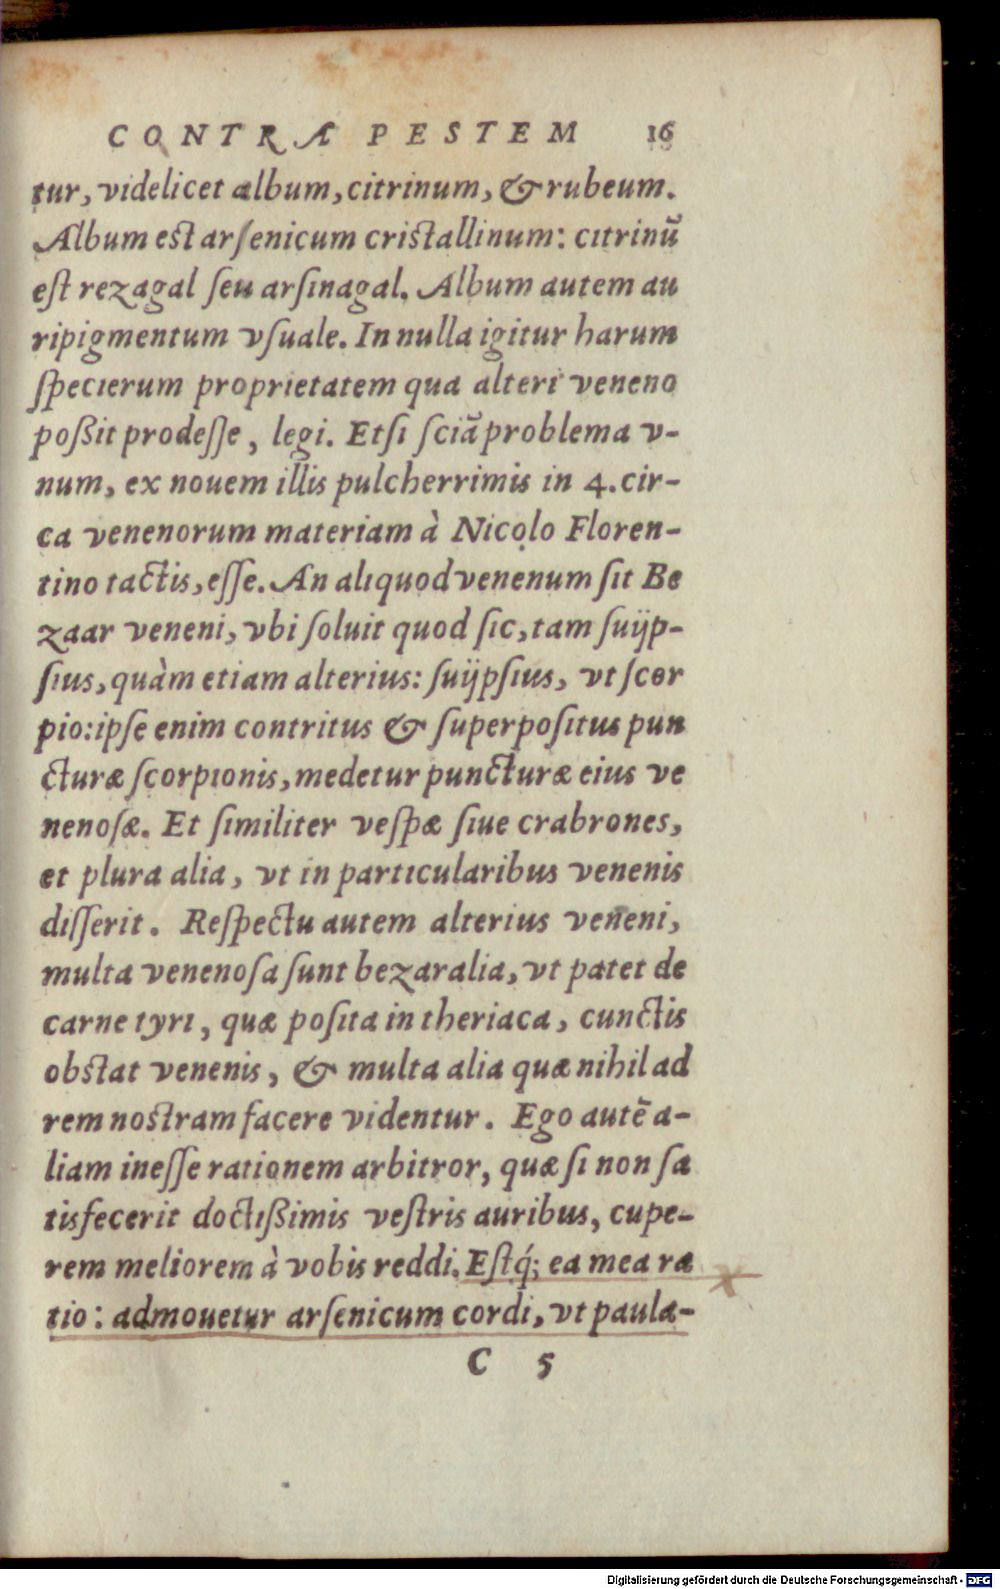 CONTRA PESTEM 16
tur, videlicet album, citrinum, & rubeum.
Album est arſenicum criſtallinum: citrinũ
eſt rezagal ſeu arſinagal. Album autem au
ripigmentum vſuale. In nulla igitur harum
ſpecierum proprietatem qua alteri veneno
poßit prodeſſe, legi. Etſi ſciã problema v-
num, ex nouem illis pulcherrimis in 4. cir-
ca venenorum materiam à Nicolo Floren-
tino tactis, eſſe. An aliquod venenum ſit Be
zaar veneni, vbi ſoluit quod ſic, tam ſuijp-
ſius, quàm etiam alterius: ſuijpſius, vt ſcor
pio: ipſe enim contritus & ſuperpoſitus pun
cturæ ſcorpionis, medetur puncturæ eius ve
nenoſæ. Et ſimiliter veſpæ ſiue crabrones,
et plura alia, vt in particularibus venenis
diſſerit. Reſpectu autem alterius veneni,
multa venenoſa ſunt bezaralia, vt patet de
carne tyri, quæ poſita in theriaca, cunctis
obſtat venenis, & multa alia quæ nihil ad
rem noſtram facere videntur. Ego autẽ a-
liam ineſſe rationem arbitror, quæ ſi non ſa
tisfecerit doctißimis veſtris auribus, cupe-
rem meliorem à vobis reddi. Eſtq́; ea mea ra
tio: admouetur arſenicum cordi, vt paula-
C 5
Digitalisierung gefördert durch die Deutsche Forschungsgemeinschaft - DFG